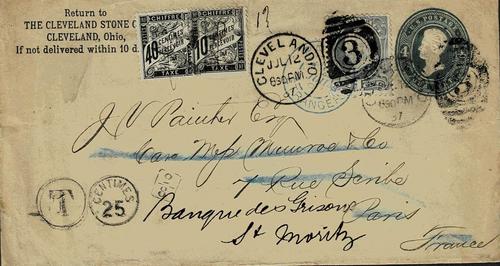 Return to
THE CLEVELAND STONE C
CLEVELAND, Ohio,
If not delivered within 10 d
CHIFFRE
40
CENTIMES
À PERCEVOIR
TAXE
CHIFFRE
10
CENTIMES
À PERCEVOIR
TAXE
CLEVELAND, O
JUL 12
630PM
97
3
U.S. POSTAGE
630PM
97
3
J V Painter Esq
Care Mess Munroe & Co
7 Rue Scribe
Paris
France
Banque des Grisons
St Moritz
T
CENTIMES
25